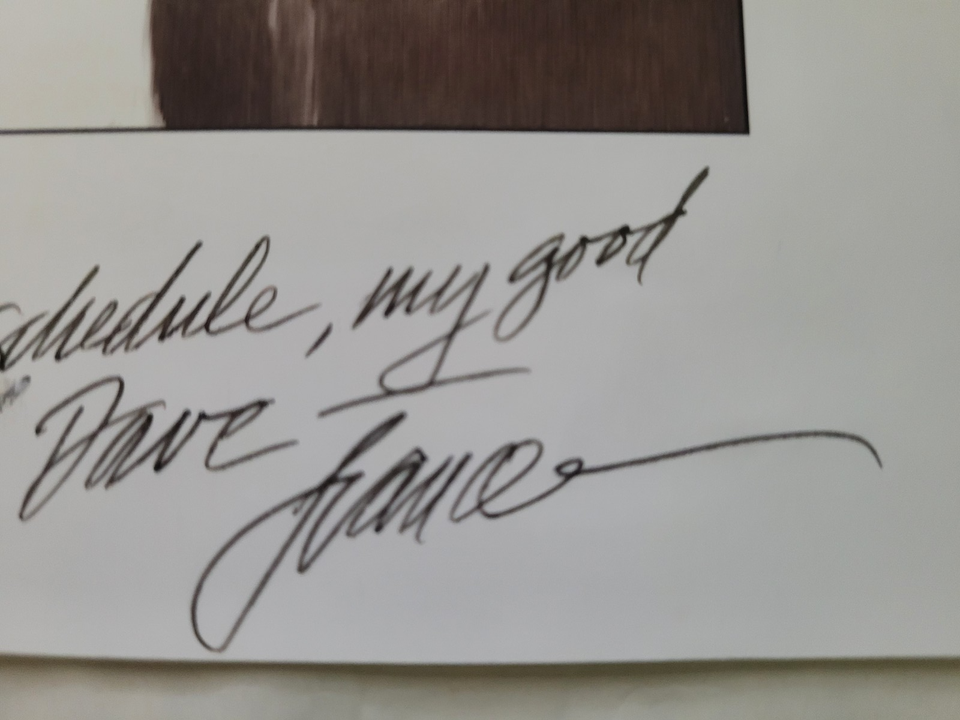 schedule, my good
Dave France